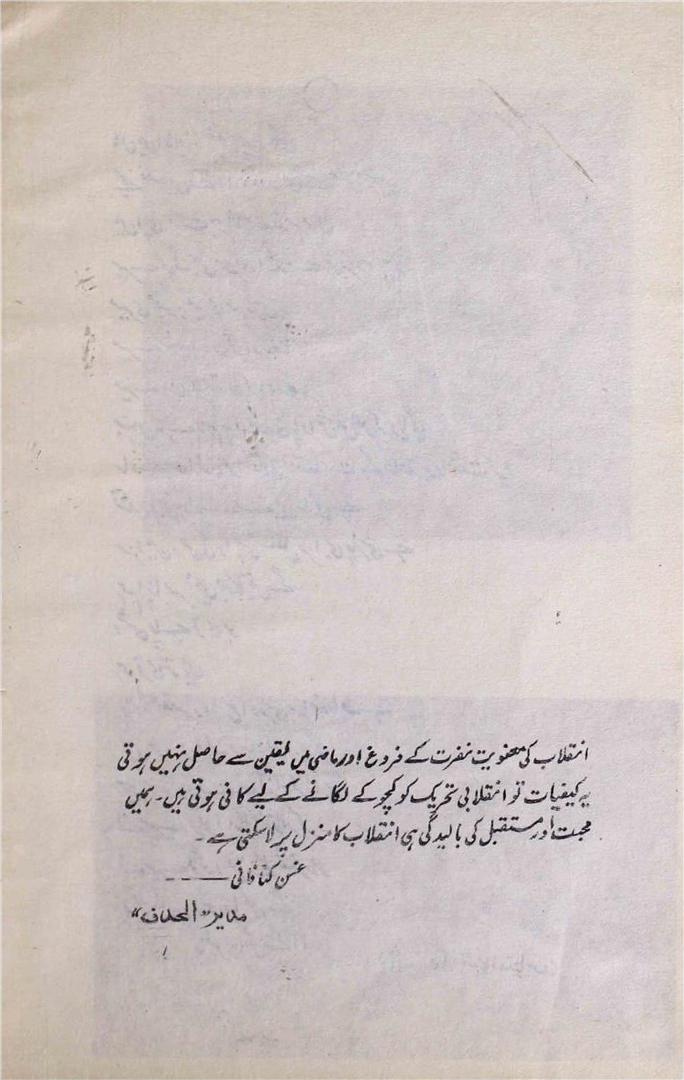 انقلاب کی معنویت نفرت کے فروغ اور ماضی میں یقین سے حاصل نہیں ہوتی
یہ کیفیات تو انقلابی تحریک کو کچوکے لگانے کے لیے کافی ہوتی ہیں۔ ہمیں
محبت اور مستقبل کی بالیدگی ہی انقلاب کا منزل پر لا سکتی ہے۔
غسن کنافانی ـــــ ـ ـ ـ
مدیر "الھدف"